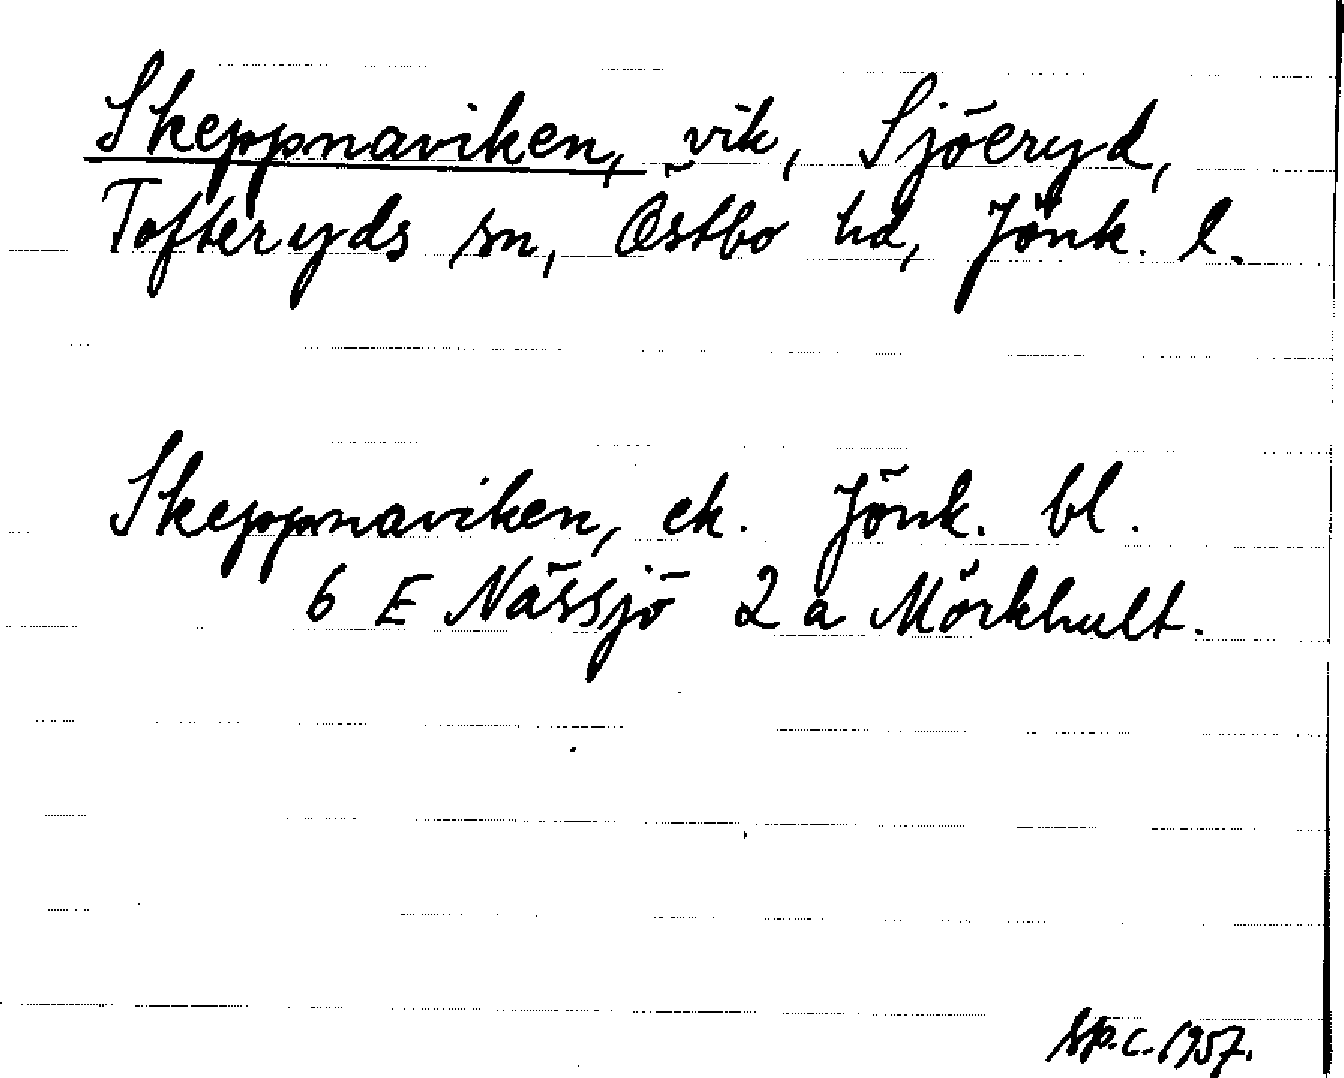 Skeppnaviken, vik, Sjöeryd,
Tofteryds sn, Östbo hd, Jönk. l.
Skeppnaviken, ek. Jönk. bl.
6 E Nässjö 2 a Mörkhult.
sp.c. 1957.